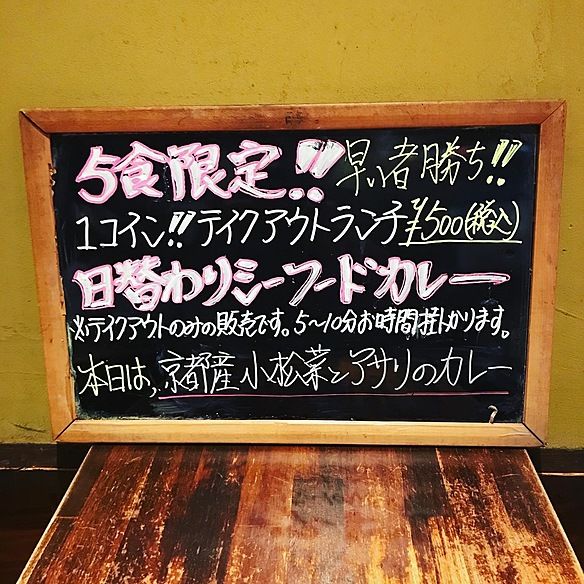 5食限定!! 早い者勝ち!!
1コイン!! テイクアウトランチ ¥500(税込)
日替わりシーフードカレー
※テイクアウトのみの販売です。5〜10分お時間掛かります。
本日は、京都産小松菜とアサリのカレー